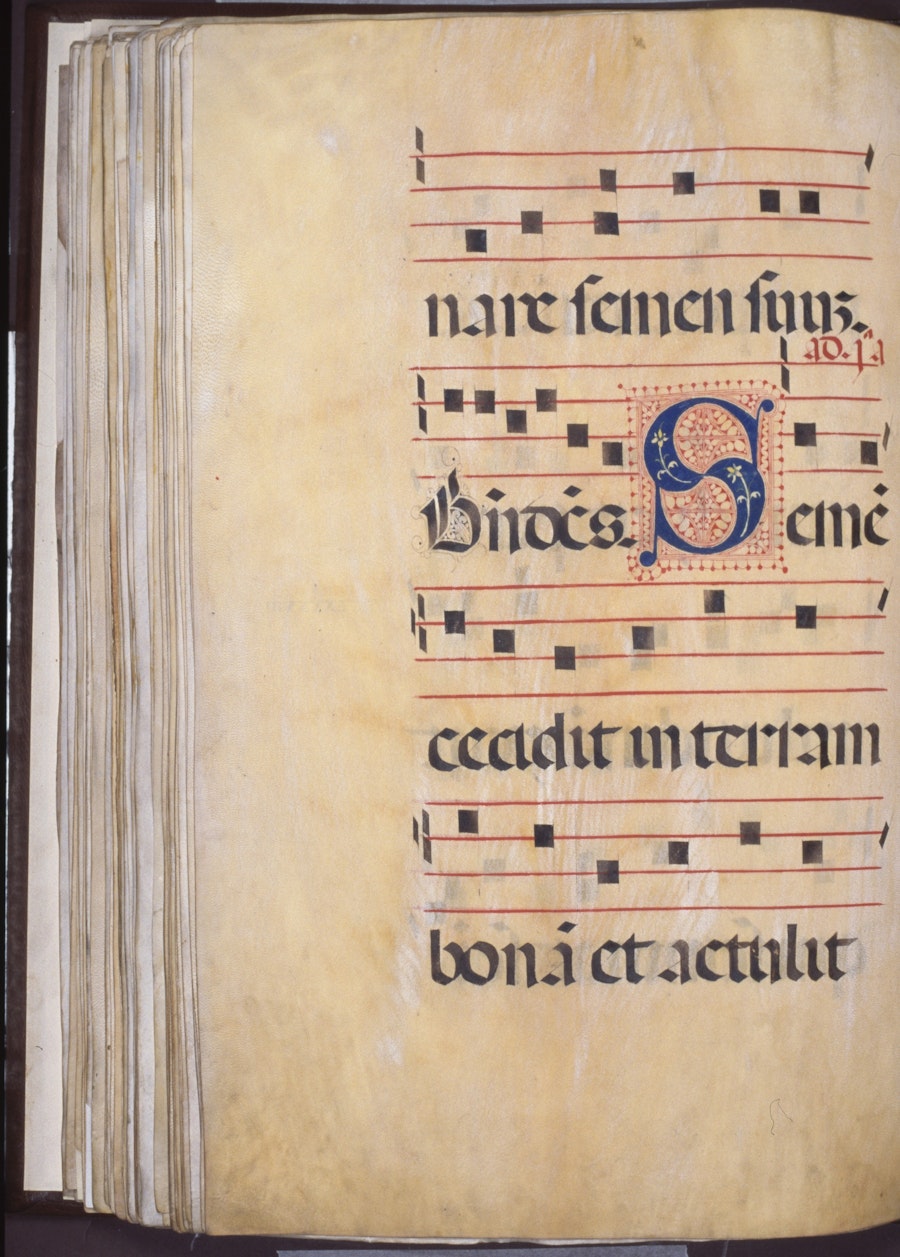 nare semen suuz.
ad. j͞a
Bñdc̄s. Semē
cecidit in terram
bonā et actulit